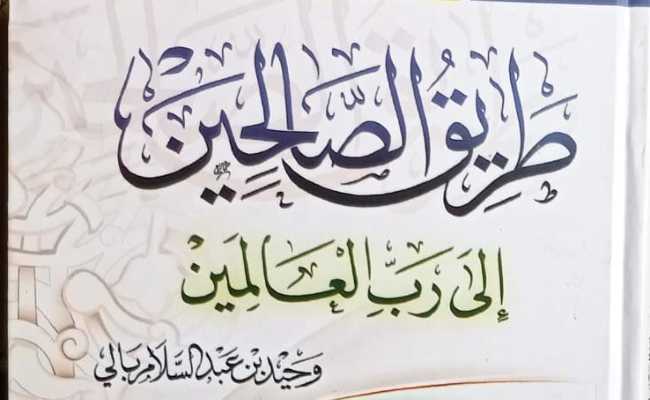 طَرِيقُ الصَّالِحِينَ
إِلَى رَبِّ الْعَالَمِينَ
وَحِيْد بن عَبْد السَّلَام بَالي